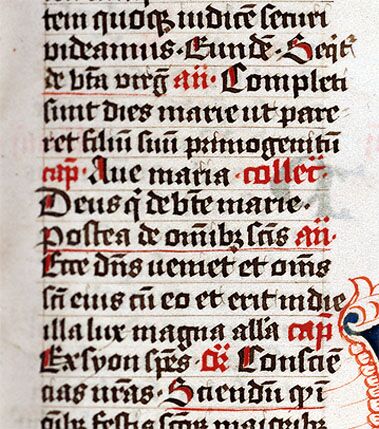 tem quoq; iudicē securi
videamus · Eundē · Seqit̄
de bt̄a virgīe aū · Completi
sunt dies marie ut pare-
ret filiū suū primogenitū
cap̄ · Aue maria · collect̄
Deus q̄ de bt̄e marie ·
Postea de om̄ib; sc̄is aū ·
Ecce dn̄s veniet et om̄s
sc̄i eius cū eo et erit in die
illa lux magna all̄a cap̄
Ex syon sp̄es cr̄ Conscien
cias nr̄as · Sciendū qi